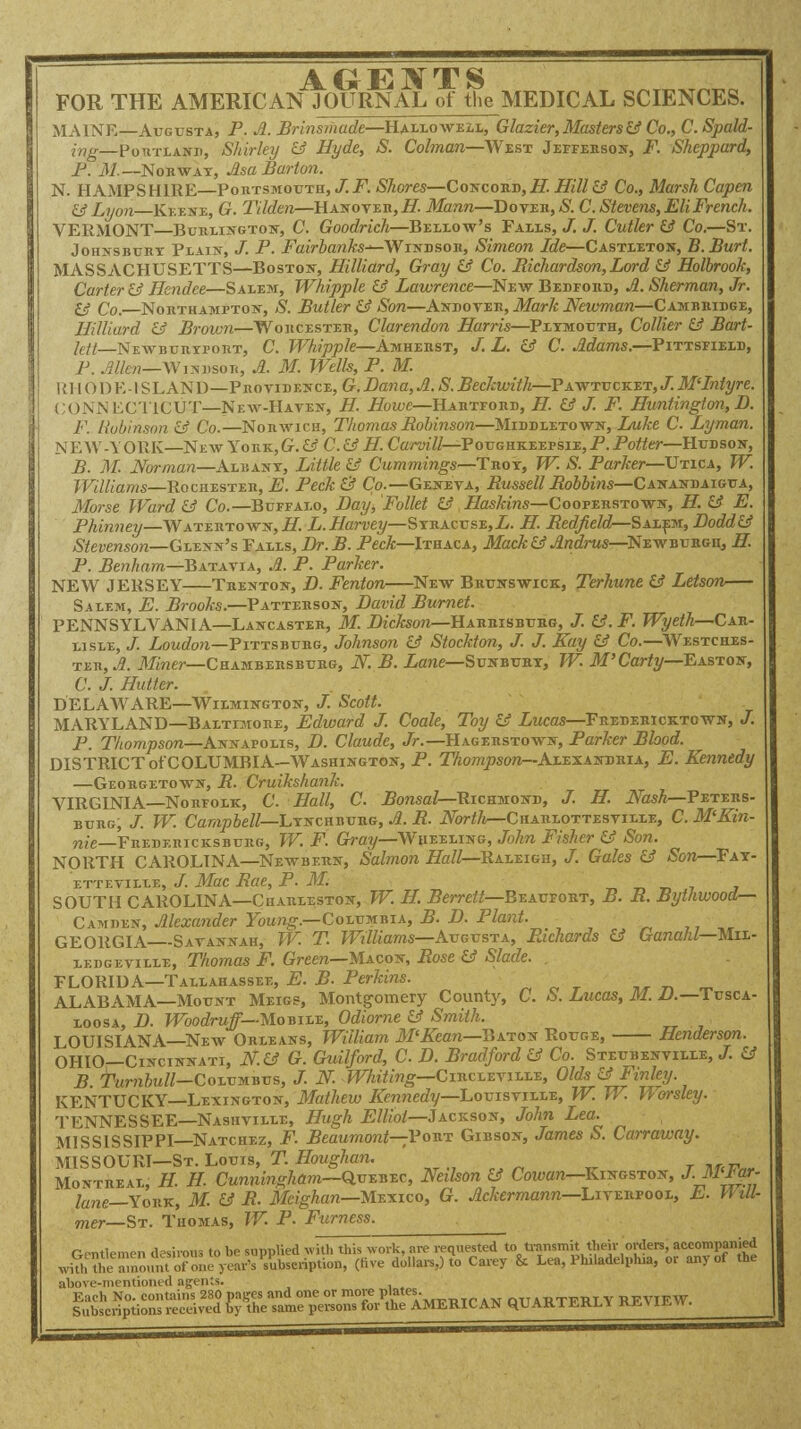 AGENTS
FOR THE AMERICAN JOURNAL of the MEDICAL SCIENCES.
MAINE—Augusta, P. A. Brinsmade—Hallowell, Glazier, Masters & Co., C. Spald-
ing—Portland, Shirley & Hyde, S. Colman—West Jefferson, F. Sheppard,
P. M.—Norway, Asa Barton.
N. HAMPSHIRE—Portsmouth, J. F. Shores—Concord, H. Hill & Co., Marsh Capen
& Lyon—Keene, G. Tilden—Hanover, H. Mann—Dover, S. C. Stevens, Eli French.
VERMONT—Burlington, C. Goodrich—Bellow's Falls, J. J. Cutler & Co.—St.
Johnsbury Plain, J. P. Fairbanks—Windsor, Simeon Ide—Castleton, B. Burt.
MASSACHUSETTS—Boston, Hilliard, Gray & Co. Richardson, Lord & Holbrook,
Carter & Hendee—Salem, Whipple & Lawrence—New Bedford, A. Sherman, Jr.
& Co.—Northampton, S. Butler & Son—Andover, Mark Newman—Cambridge,
Hilliard & Brown—Worcester, Clarendon Harris—Plymouth, Collier & Bart-
lett—Newburyport, C. Whipple—Amherst, J. L. & C. Adams.—Pittsfield,
P. Allen—Windsor, A. M. Wells, P. M.
RHODE-ISLAND—Providence, G. Dana, A. S. Beckwith—Pawtucket, J. M‘Intyre.
CONNECTICUT—New-Haven, H. Howe—Hartford, H. & J. F. Huntington, D.
F. Robinson & Co.—Norwich, Thomas Robinson—Middletown, Luke C. Lyman.
NEW-YORK—New York, G. & C. & H. Carvill—Poughkeepsie, P. Potter—Hudson,
B. M. Norman—Albany, Little & Cummings—Troy, W. S. Parker—Utica, W.
Williams—Rochester, E. Peck & Co.—Geneva, Russell Robbins—Canandaigua,
Morse Ward & Co.—Buffalo, Day, Follet & Haskins—Cooperstown, H. & E.
Phinney—Watertown, H. L. Harvey—Syracuse, L. H. Redfield—Salem, Dodd &
Stevenson—Glenn's Falls, Dr. B. Peck—Ithaca, Mack & Andrus—Newburgh, H.
P. Benham—Batavia, A. P. Parker.
NEW JERSEY—Trenton, D. Fenton—New Brunswick, Terhune & Letson—
Salem, E. Brooks.—Patterson, David Burnet.
PENNSYLVANIA—Lancaster, M. Dickson—Harrisburg, J. &. F. Wyeth—Car-
lisle, J. Loudon—Pittsburg, Johnson & Stockton, J. J. Kay & Co.—Westches-
ter, A. Miner—Chambersburg, N. B. Lane—Sunbury, W. M'Carty—Easton,
C. J. Hutter.
DELAWARE—Wilmington, J. Scott.
MARYLAND—Baltimore, Edward J. Coale, Toy & Lucas—Fredericktown, J.
P. Thompson—Annapolis, D. Claude, Jr.—Hagerstown, Parker Blood.
DISTRICT of COLUMBIA—Washington, P. Thompson—Alexandria, E. Kennedy
—Georgetown, R. Cruikshank.
VIRGINIA—Norfolk, C. Hall, C. Bonsal—Richmond, J. H. Nash—Peters-
burg, J. W. Campbell—Lynchburg, A. R. North—Charlottesville, C. M‘Kin-
nie—Fredericksburg, W. F. Gray—Wheeling, John Fisher & Son.
NORTH CAROLINA—Newbern, Salmon Hall—Raleigh, J. Gales & Son—Fay-
etteville, J. Mac Rae, P. M.
SOUTH CAROLINA—Charleston, W. H. Berrett—Beaufort, B. R. Bythwood—
Camden, Alexander Young.—Columbia, B. D. Plant.
GEORGIA—Savannah, W. T. Williams—Augusta, Richards & Ganahl—Mil-
ledgeville, Thomas F. Green—Macon, Rose & Slade.
FLORIDA—Tallahassee, E. B. Perkins.
ALABAMA—Mount Meigs, Montgomery County, C. S. Lucas, M. D.—Tusca-
loosa, D. Woodruff—Mobile, Odiorne & Smith.
LOUISIANA—New Orleans, William M‘Kean—Baton Rouge, —— Henderson.
OHIO—Cincinnati, N. & G. Guilford, C. D. Bradford & Co. Steubenville, J. &
B. Turnbull—Columbus, J. N. Whiting—Circleville, Olds & Finley.
KENTUCKY—Lexington, Mathew Kennedy—Louisville, W. W. Worsley.
TENNESSEE—Nashville, Hugh Elliot—Jackson, John Lea.
MISSISSIPPI—Natchez, F. Beaumont—Port Gibson, James S. Carraway.
MISSOURI—St. Louis, T. Houghan.
Montreal, H. H. Cunningham—Quebec, Neilson & Cowan—Kingston, J. M‘Far-
lane—York, M. & R. Meighan—Mexico, G. Ackermann—Liverpool, E. Will-
mer—St. Thomas, W. P. Furness.
Gentlemen desirous to be supplied with this work, are requested to transmit their orders, accompanied
with the amount of one year's subscription, (five dollars,) to Carey & Lea, Philadelphia, or any of the
above-mentioned agents.
Each No. contains 280 pages and one or more plates.
Subscriptions received by the same persons for the AMERICAN QUARTERLY REVIEW.